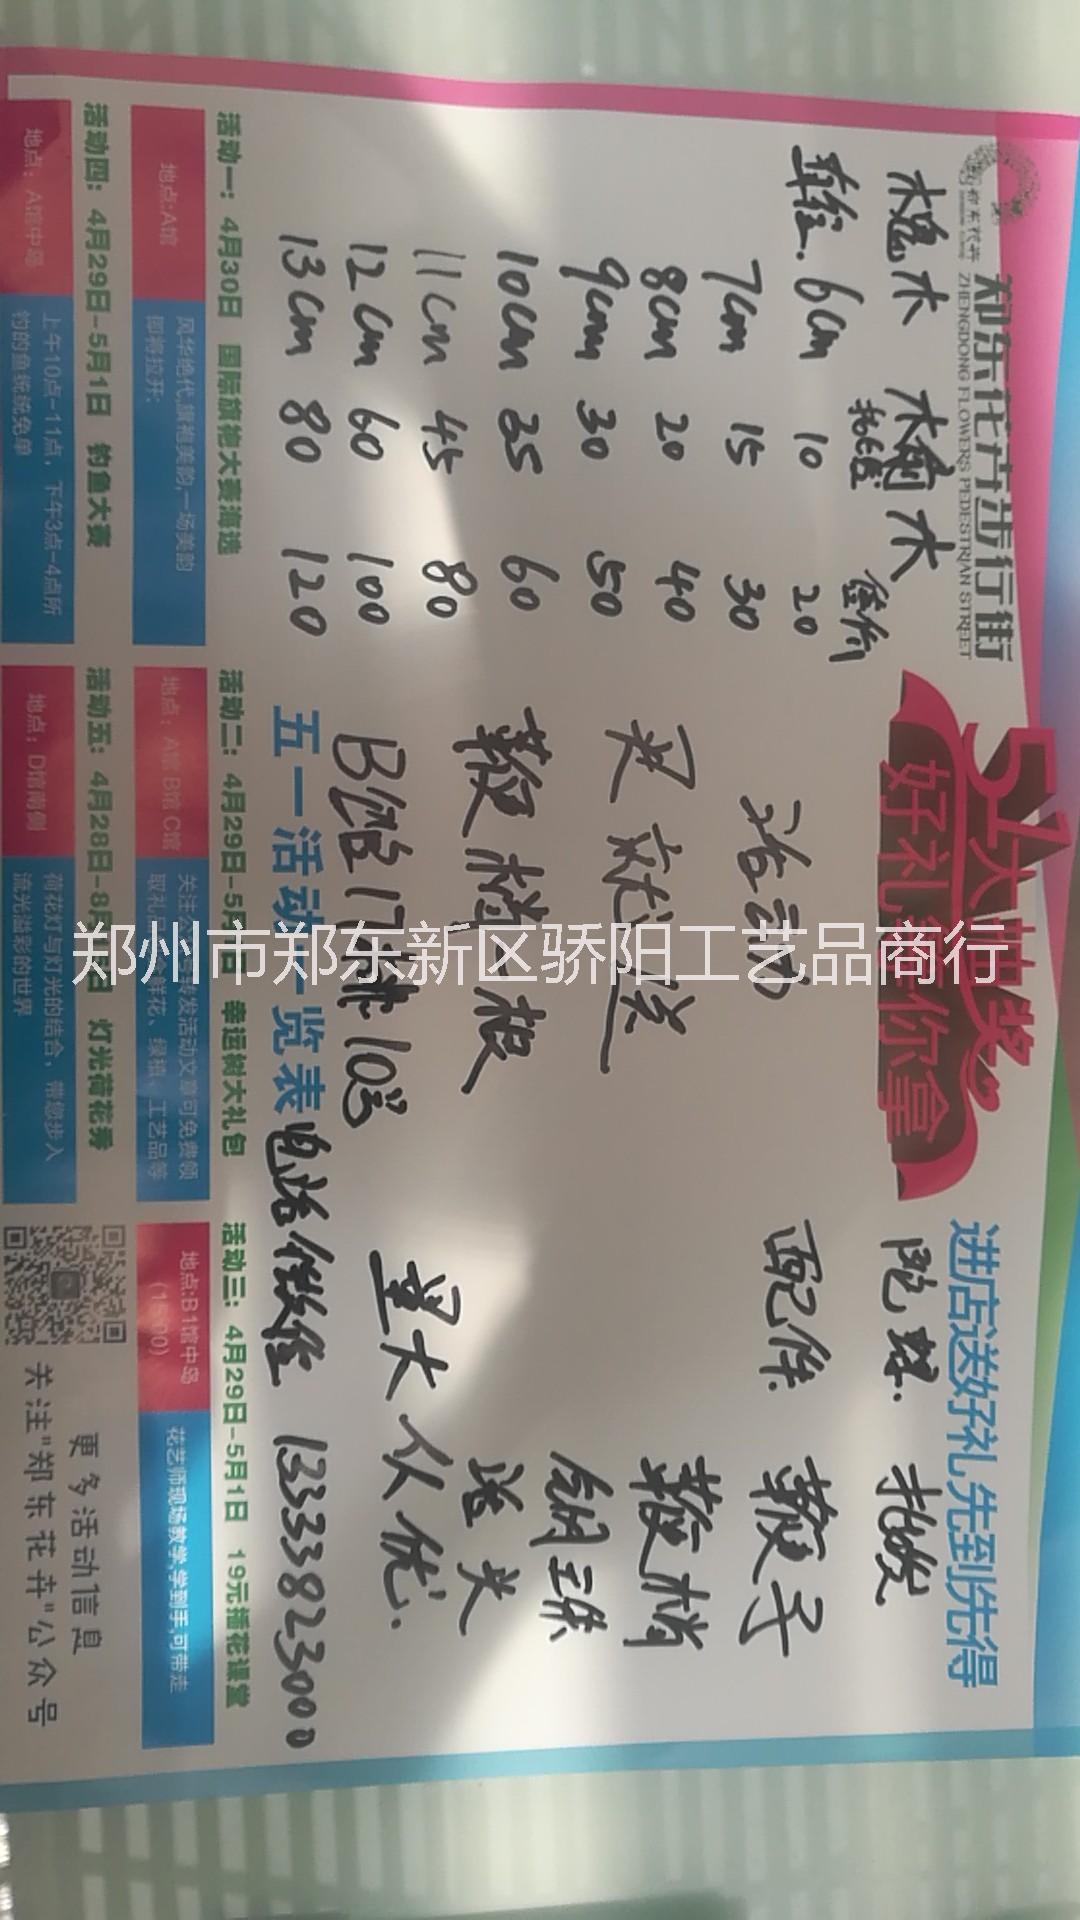 郑东花卉步行街
ZHENGDONG FLOWERS PEDESTRIAN STREET
51大抽奖
好礼等你拿
进店送好礼 先到先得
槐木 榆木
陀螺. 批发
直径. 批 零价
6cm 10 20
7cm 15 30
8cm 20 40
9cm 30 50
10cm 35 60
11cm 45 80
12cm 60 100
13cm 80 120
活动
买就送
鞭梢一根
B馆17排103
配件. 鞭子
鞭梢
钢珠
送头
量大从优.
电话微信 13338023000
五一活动一览表
郑州市郑东新区骄阳工艺品商行
活动一: 4月30日 国际旗袍大赛海选
地点:A馆
风华绝代,旗袍美韵,一场美韵
即将拉开:
活动二: 4月29日-5月1日 幸运树大礼包
地点: A馆 B馆 C馆
关注公众号转发活动文章可免费领
取礼品 鲜花、绿植、工艺品等
活动三: 4月29日-5月1日 19元插花课堂
地点:B1馆中岛
(15:00)
花艺师现场教学,学到手,可带走
活动四: 4月29日-5月1日 钓鱼大赛
地点: A馆中岛
上午10点-11点, 下午3点-4点所
钓的鱼统统免单
活动五: 4月28日-8月 日 灯光荷花秀
地点: D馆南侧
荷花灯与灯光的结合, 带您步入
流光溢彩的世界
更多活动信息
关注"郑东花卉"公众号